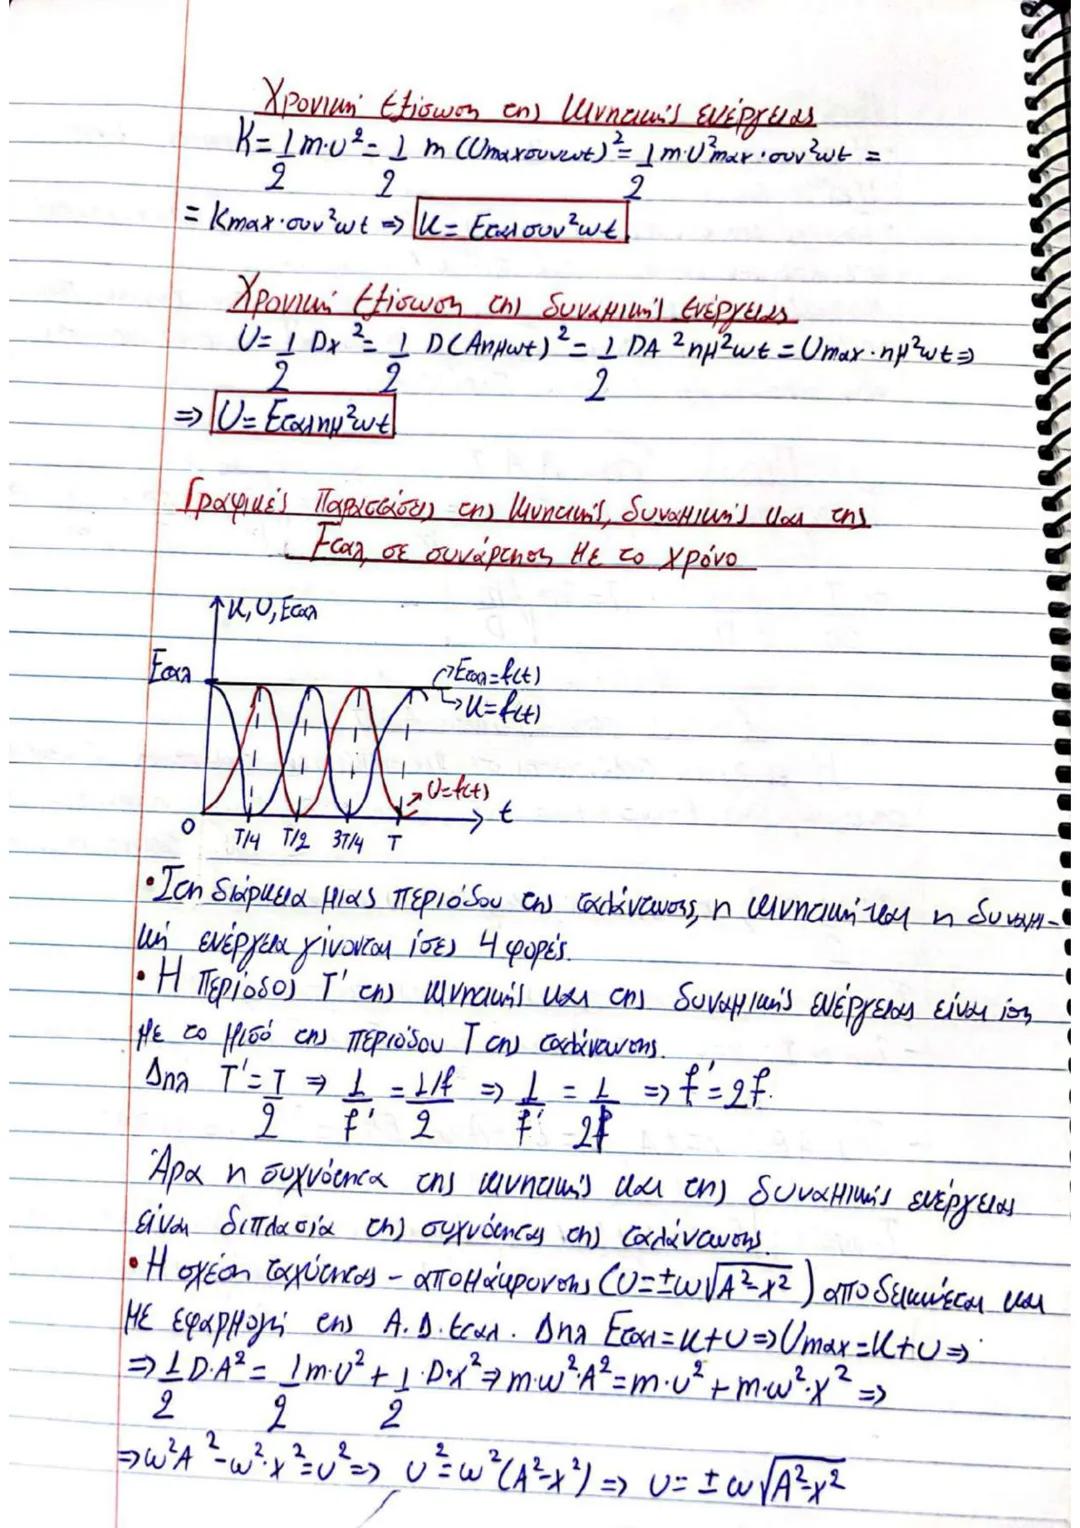 Χρονική εξίσωση της κινητικής ενέργειας
K = 1/2 m·υ² = 1/2 m (υmaxσυνωt)² = 1/2 m·υ²max·συν²ωt =
= Kmax·συν²ωt ⇒ K = Eταλσυν²ωt
Χρονική εξίσωση της δυναμικής ενέργειας
U = 1/2 Dx² = 1/2 D(Aημωt)² = 1/2 DA²ημ²ωt = Umax·ημ²ωt ⇒
⇒ U = Eταλημ²ωt
Γραφικές Παραστάσεις της κινητικής, δυναμικής και της
Εταλ σε συνάρτηση με το χρόνο
K, U, Eταλ
Eταλ
Eταλ=f(t)
K=f(t)
U=f(t)
t
0
T/4 T/2 3T/4 T
• Στη διάρκεια μιας περιόδου της ταλάντωσης, η κινητική και η δυναμι-
κή ενέργεια γίνονται ίσες 4 φορές.
• Η περίοδος T' της κινητικής και της δυναμικής ενέργειας είναι ίση
με το μισό της περιόδου T της ταλάντωσης.
Δηλ T' = T/2 ⇒ 1/f' = 1/f/2 ⇒ 1/f' = 1/2f ⇒ f' = 2f.
Άρα η συχνότητα της κινητικής και της δυναμικής ενέργειας
είναι διπλασία της συχνότητας της ταλάντωσης.
• Η σχέση ταχύτητας - απομάκρυνσης (υ=±ω√A²-x²) αποδεικνύεται και
με εφαρμογή της Α.Δ.Εταλ. Δηλ Εταλ=K+U ⇒ Umax=K+U ⇒
⇒ 1/2 D·A² = 1/2 m·υ² + 1/2·D·x² ⇒ m·ω²·A² = m·υ² + m·ω²·x² ⇒
⇒ ω²A² - ω²·x² = υ² ⇒ υ² = ω²(A²-x²) ⇒ υ = ± ω√A²-x²